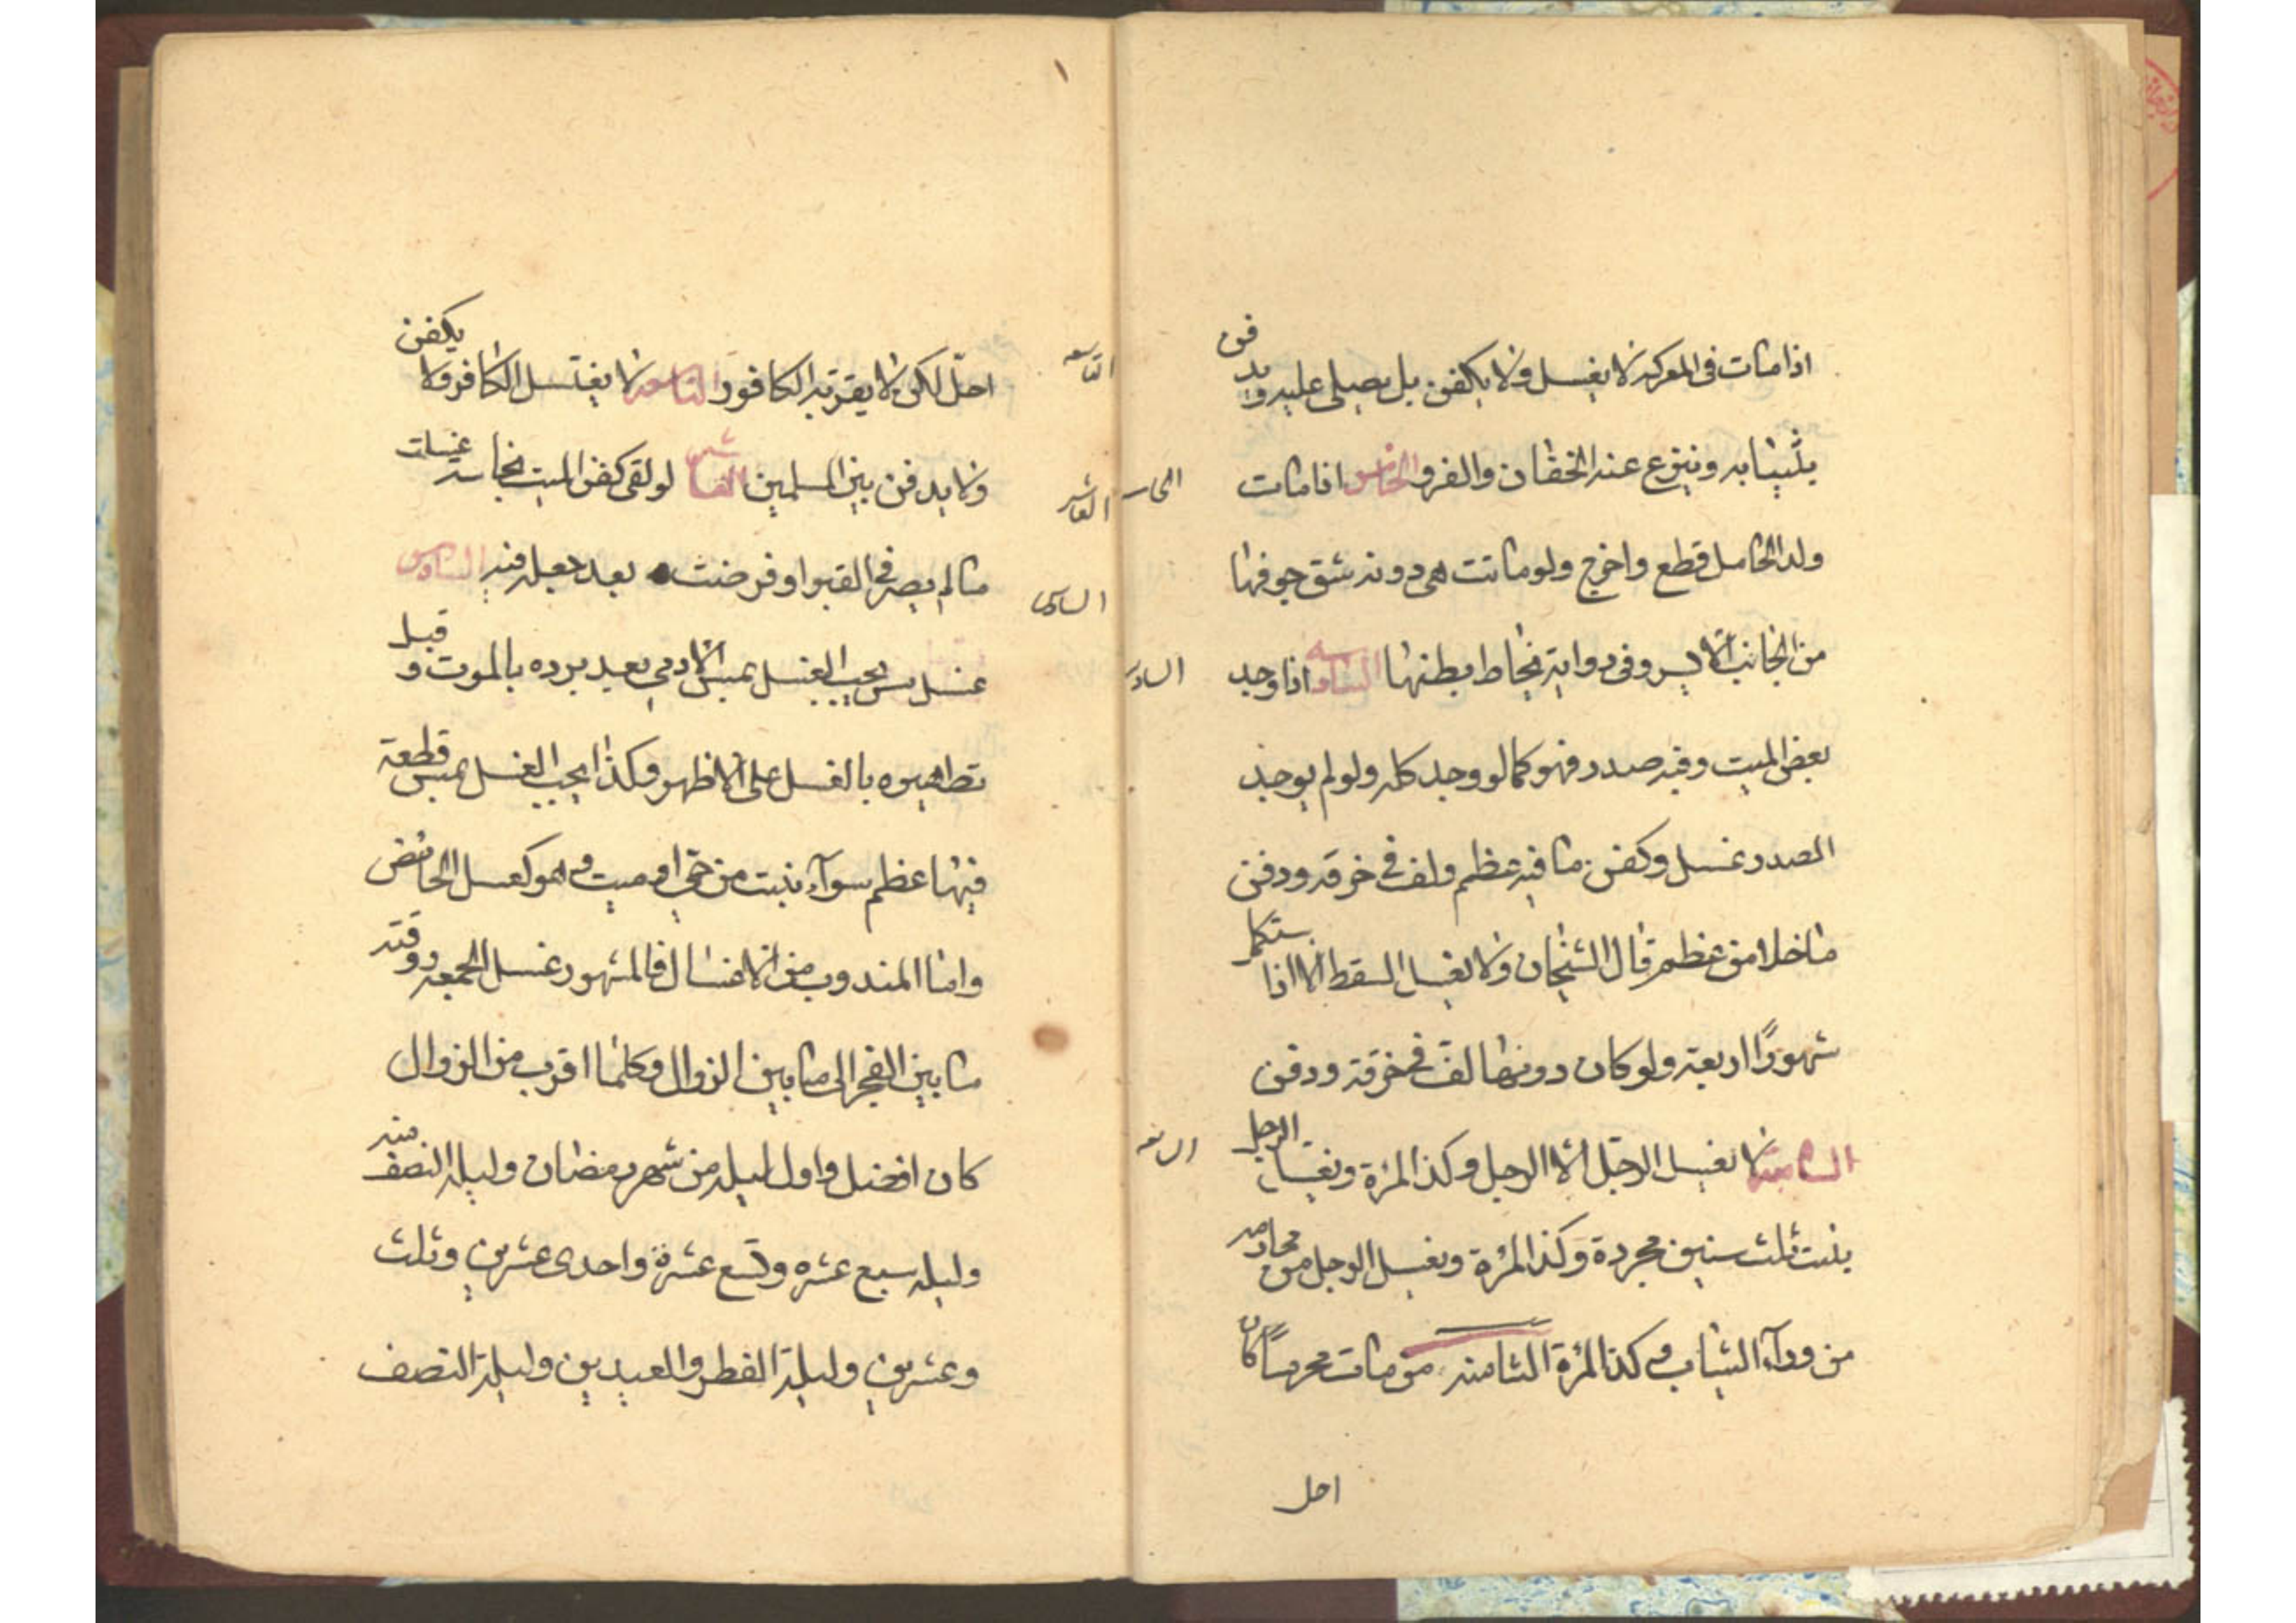 اذا مات فى المعركه لا يغسل ولا يكفن بل يصلى عليه ويدفن
بثيابه وينزع عنه الخفان والفرو الخامس اذا مات
ولد الحامل قطع واخرج ولو ماتت هى دونه شق جوفها
من الجانب الايسر وفى رواية يخاط بطنها السادسه اذا وجد
بعض الميت وفيه صدر فهو كما لو وجد كله ولو لم يوجد
الصدر غسل وكفن ما فيه عظم ولف فى خرقه ودفن
ما خلا من عظم قال الشيخان ولا يغسل السقط الا اذا استكمل
شهورًا اربعة ولو كان دونها لف فى خرقة ودفن
السابعه لا يغسل الرجل الا الرجل وكذا المرئة ويغسل الرجل
بنت ثلث سنين مجردة وكذا المرئة ويغسل الرجل من محارمه
من ورآء الثياب وكذا المرئة الثامنه من مات محرمًا كان
احل
الخامـ
السادـ
التاسعه
احلّ لكن لا يقربه الكافور التاسعه لا يغتسل الكافر ولا يكفن
ولا يدفن بين المسلمين العاشر لو لقى كفن الميت نجاسة غسلت
ما لم يصر فى القبر او قرضت بعد جعله فيه السادس
غسل مس يجب الغسل بمس الادمى بعد برده بالموت وقبل
تطهيره بالغسل على الاظهر وكذا يجب الغسل بمس قطعة
فيها عظم سوآء بنيت من حى او ميت وهو كغسل الحائض
واما المندوب من الاغسال فالمشهور غسل الجمعه ووقته
ما بين الفجر الى ما بين الزوال وكلما اقرب من الزوال
كان افضل واول ليله من شهر رمضان وليله النصف منه
وليله سبع عشره وتسع عشرة واحدى عشرين وثلث
وعشرين وليلة الفطر والعيدين وليلة النصف
العاشر
السادس